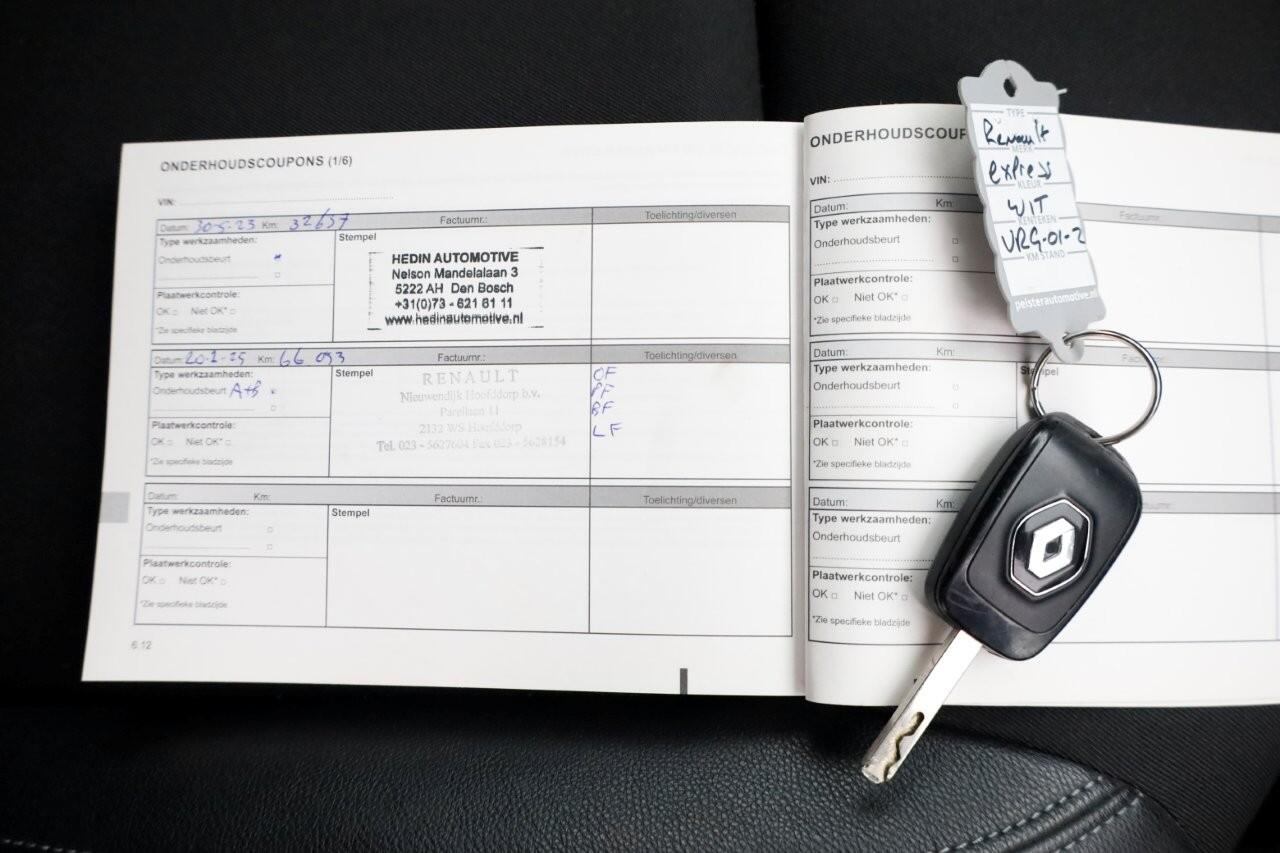 ONDERHOUDSCOUPONS (1/6)
VIN:
Datum: 30-5-23 Km: 32657 Factuurnr.: Toelichting/diversen
Type werkzaamheden:
Onderhoudsbeurt
Plaatwerkcontrole:
OK Niet OK*
*Zie specifieke bladzijde
Stempel
HEDIN AUTOMOTIVE
Nelson Mandelalaan 3
5222 AH Den Bosch
+31(0)73 - 621 81 11
www.hedinautomotive.nl
Datum: Km: 66 093 Factuurnr.: Toelichting/diversen
Type werkzaamheden:
Onderhoudsbeurt A+B
Plaatwerkcontrole:
OK Niet OK*
*Zie specifieke bladzijde
Stempel
RENAULT
Nieuwendijk Hoofddorp b.v.
Parellaan 11
2132 WS Hoofddorp
Tel. 023 - 5627604 Fax 023 - 5628154
OF
PF
BF
LF
Datum: Km: Factuurnr.: Toelichting/diversen
Type werkzaamheden:
Onderhoudsbeurt
Plaatwerkcontrole:
OK Niet OK*
*Zie specifieke bladzijde
Stempel
6.12
ONDERHOUDSCOUP
VIN:
Datum: Km:
Type werkzaamheden:
Onderhoudsbeurt
Plaatwerkcontrole:
OK Niet OK*
*Zie specifieke bladzijde
Datum: Km:
Type werkzaamheden:
Onderhoudsbeurt
Plaatwerkcontrole:
OK Niet OK*
*Zie specifieke bladzijde
Datum: Km:
Type werkzaamheden:
Onderhoudsbeurt
Plaatwerkcontrole:
OK Niet OK*
*Zie specifieke bladzijde
TYPE
Renault
MERK
express
KLEUR
WIT
KENTEKEN
VRG-01-Z
KM STAND
peisterautomotive.nl